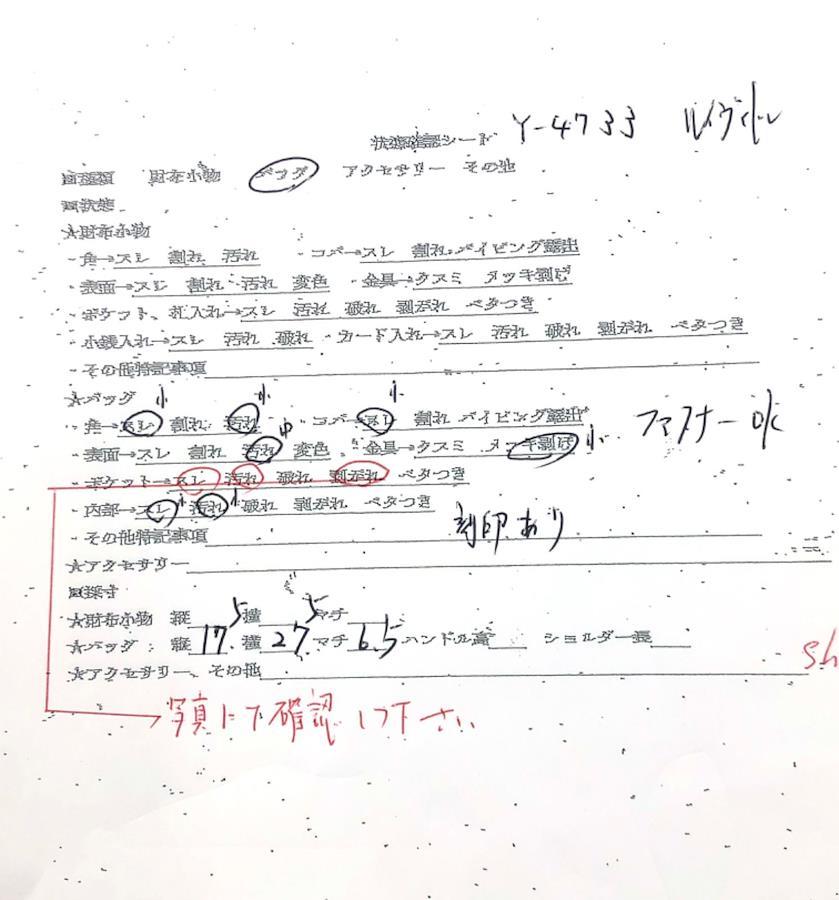 状態確認シート Y-4733 ルイヴィトン
□種類 財布小物 バッグ アクセサリー その他
□状態
★財布小物
・角→スレ 割れ 汚れ ・コバ→スレ 割れ パイピング露出
・表面→スレ 割れ 汚れ 変色 ・金具→クスミ メッキ剥げ
・ポケット、札入れ→スレ 汚れ 破れ 剥がれ ベタつき
・小銭入れ→スレ 汚れ 破れ ・カード入れ→スレ 汚れ 破れ 剥がれ ベタつき
・その他特記事項
★バッグ 小 小 小
・角→スレ 割れ 汚れ ・コバ→スレ 割れ パイピング露出 ファスナーOK
・表面→スレ 割れ 汚れ 中 変色 ・金具→クスミ メッキ剥げ 小
・ポケット→スレ 汚れ 破れ 剥がれ ベタつき
・内部→スレ 小 汚れ 小 破れ 剥がれ ベタつき
・その他特記事項 刻印あり
★アクセサリー
□採寸
★財布小物 縦 横 マチ
★バッグ：縦 17.5 横 27.5 マチ 6.5 ハンドル高 ショルダー長
★アクセサリー、その他 sh
写真にて確認して下さい